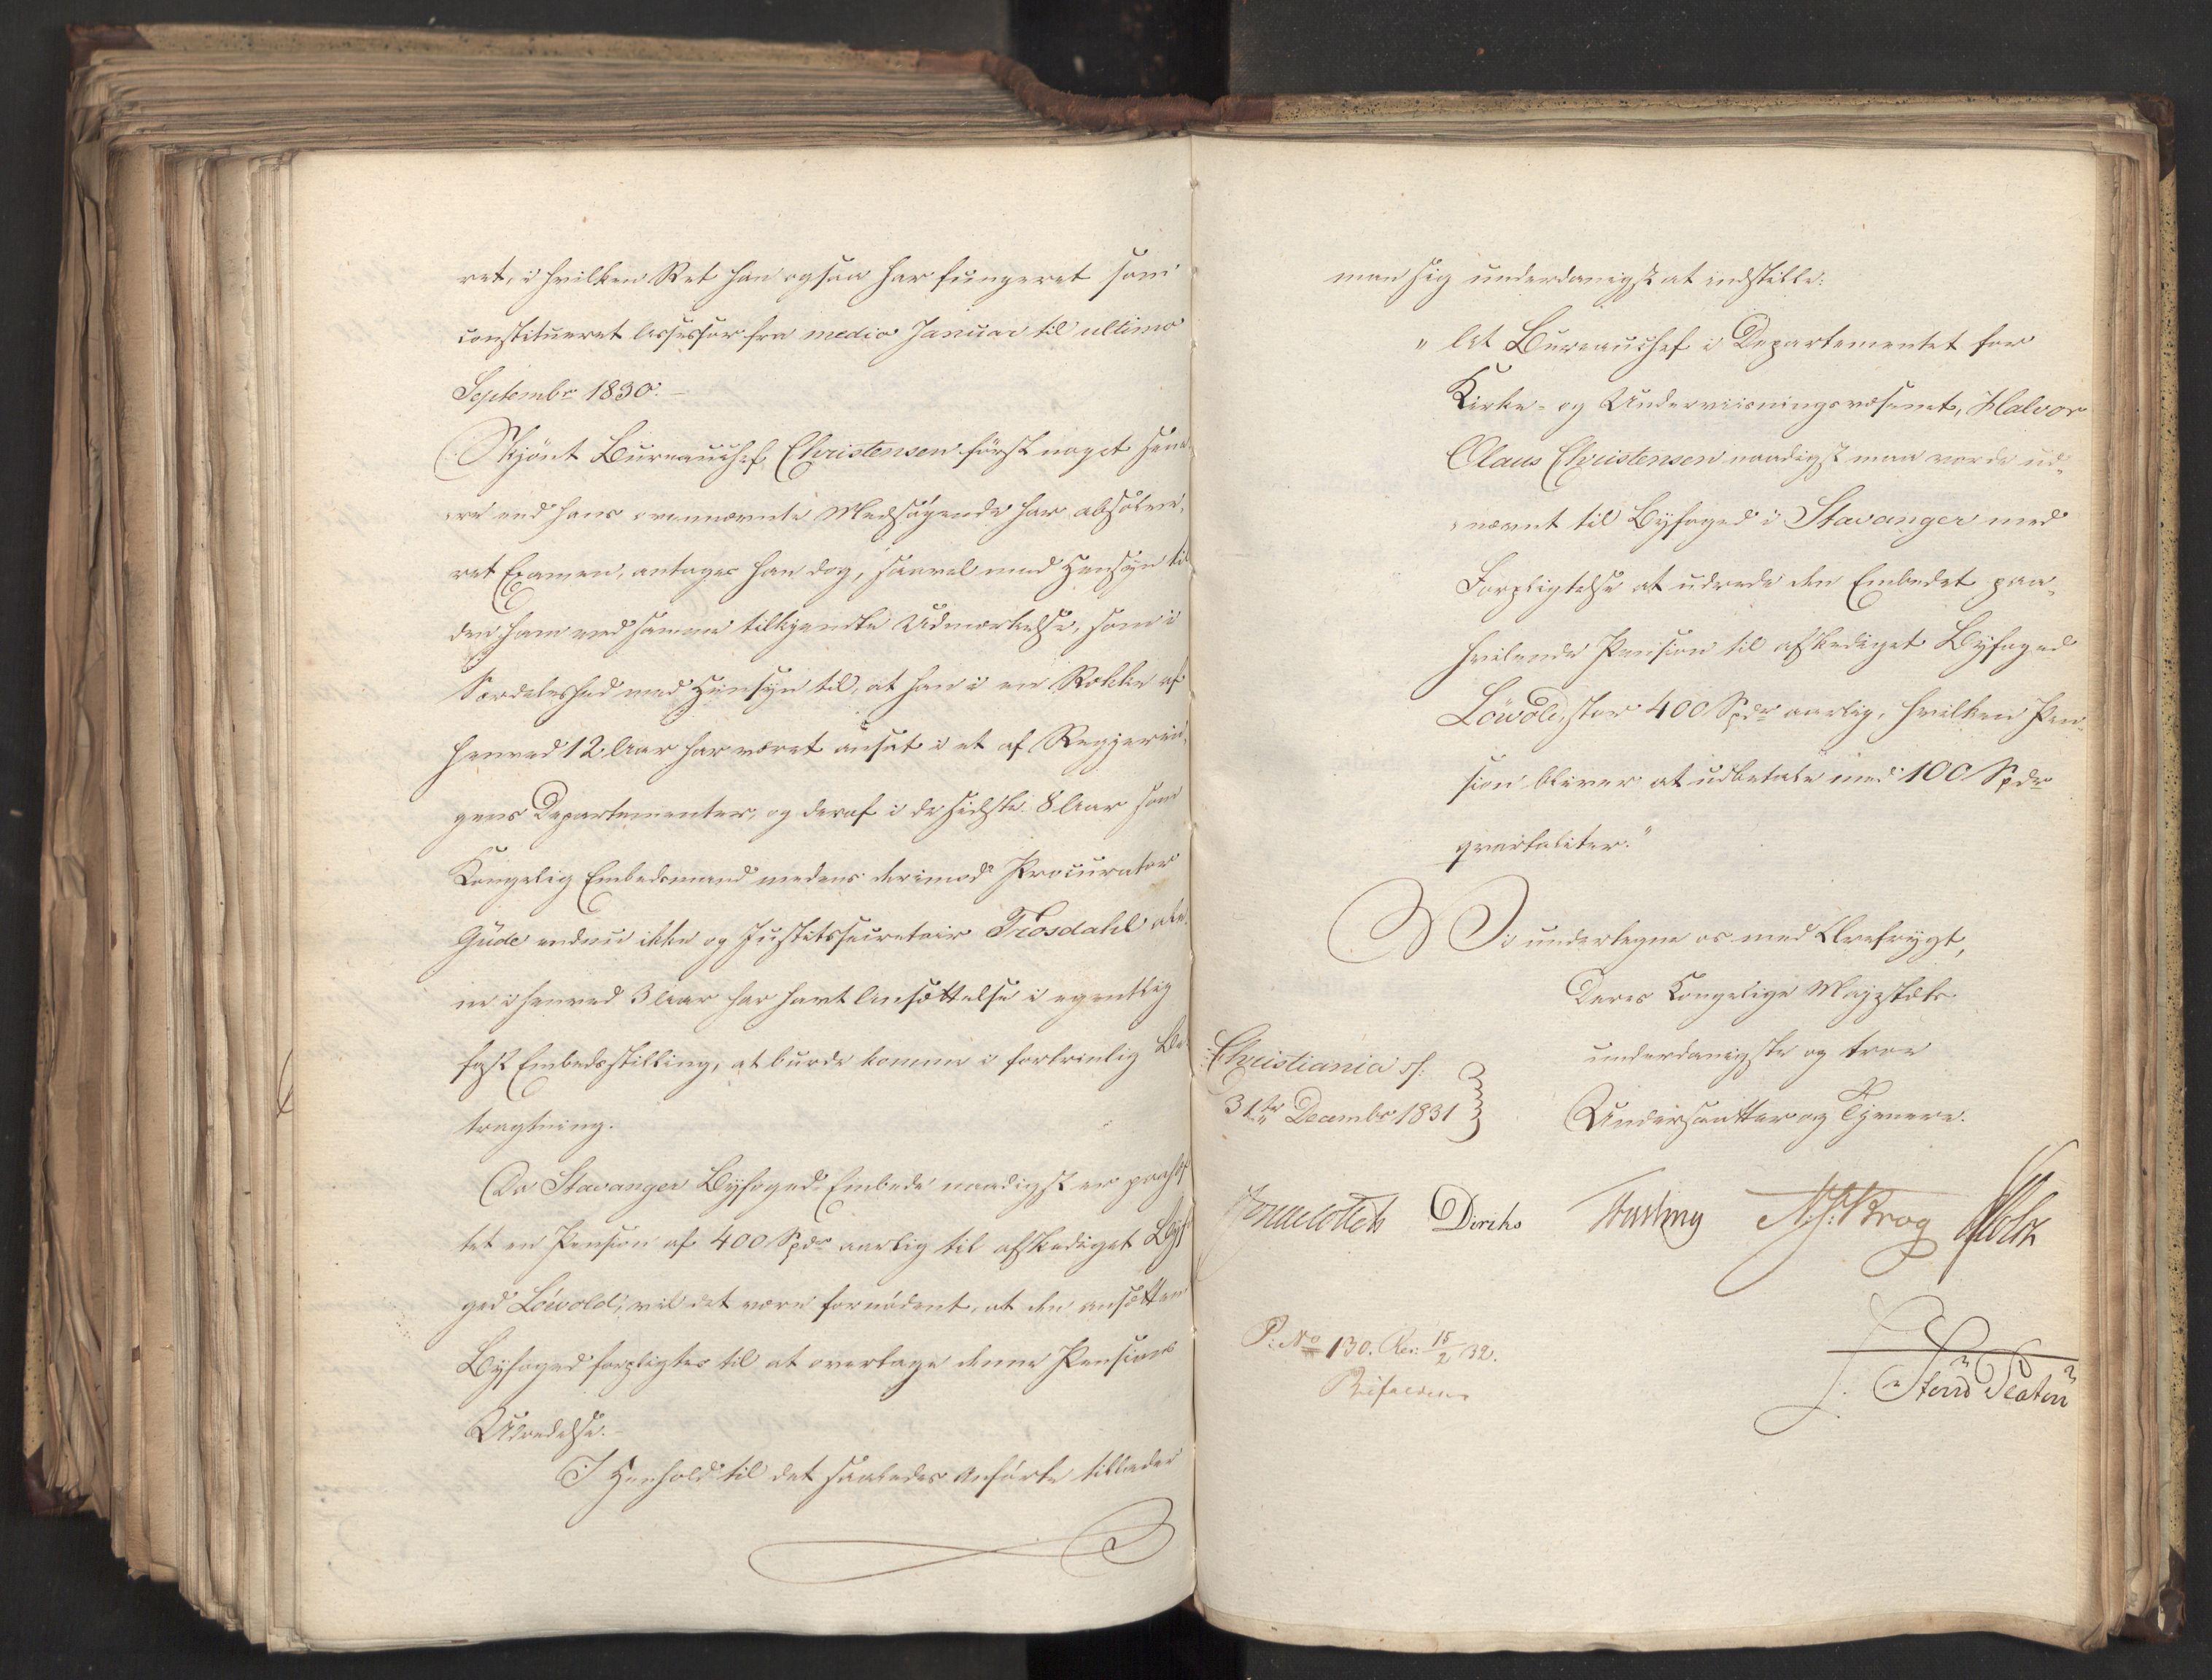 ret, i hvilken Ret han ogsaa har fungeret som
constitueret Assessor fra medio Januar til ultimo
Septembr 1830. –
Skjönt Bureauchef Christensen först noget sene-
re end hans ovennævnte Medsögende har absolve-
ret Examen, antages han dog, saavel med Hensyn til
den ham ved samme tilkjendte Udmærkelse, som i
Særdeleshed med Hensyn til, at han i en Række af
henved 12 Aar har været ansat i et af Regjerin-
gens Departementer, og deraf i de sidste 8 Aar som
Kongelig Embedsmand medens derimod Procurator
Gude endnu ikke og Justitssecretair Trosdahl ale-
ne i henved 3 Aar har havt Ansættelse i egentlig
fast Embedsstilling, at burde komme i fortrinlig Be-
tragtning.
Da Stavanger Byfoged-Embede naadigst er paahef-
tet en Pension af 400 Spdr aarlig til afskediget Byfo-
ged Löwold, vil det være fornödent, at den ansættende
Byfoged forpligtes til at overtage denne Pensions
Udredelse. –
I Henhold til det saaledes Anförte tillader
man sig underdanigst at indstille:
"At Bureauchef i Departementet for
Kirke- og Underviisningsvæsenet, Halvor
Olaus Christensen naadigst maa vorde ud-
nævnt til Byfoged i Stavanger med
Forpligtelse at udrede den Embedet paa-
hvilende Pension til afskediget Byfoged
Löwold, stor 400 Spdr aarlig, hvilken Pen-
sion bliver at udbetale med 100 Spdr
qvartaliter."
Vi undertegne os med Ærefrygt,
Deres Kongelige Majestæts
underdanigste og troe
Undersaatter og Tjenere.
Christiania d.
31te Decembr 1831
Jonas Collett Diriks Fasting N. J. Krog Holst
P: No 130. Res: 15/2 32.
Bifaldes